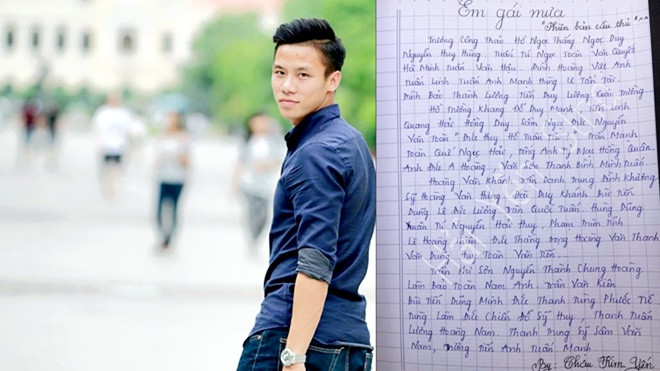 Em gái mưa
"Phiên bản cầu thủ" ^^
Trương Công Thảo Hồ Ngọc Thắng Ngọc Duy
Nguyễn Huy Hùng, Tuấn Tú Ngọc Toàn Văn Quyết
Hà Minh Tuấn Văn Hậu, Đình Hoàng Việt Anh
Tuấn Linh Tuấn Anh Mạnh Hùng Lê Tấn Tài.
Đình Bảo Thanh Lương Tiến Duy Lương Xuân Trường...
Hồ Trường Khang Đỗ Duy Mạnh, Tiến Linh
Quang Hải Hồng Duy Sầm Ngọc Đức Nguyễn
Văn Toàn Đức Huy Hồ Tuấn Tài Trần Mạnh
Toàn Quế Ngọc Hải, Đông Anh Tỷ Mau Hồng Quân
Anh Đức A Hoàng, Văn Sơn Thanh Bình Minh Tuấn
Hoàng Văn Khánh Danh Trung Đinh Khương
Sỹ Hoàng Văn Hùng Duy Khanh Bùi Tiến
Dụng Lê Đức Lương Văn Quốc Tuấn. Hùng Dũng
Xuân Tú Nguyễn Hải Huy, Phạm Trùm Tỉnh
Lê Hoàng Thiên Đức Thắng Đông Hoàng Văn Thanh
Văn Dũng Huy Toàn Văn Tiến...
Trần Phi Sơn Nguyễn Thành Chung Hoàng
Lâm Bảo Toàn Nam Anh. Trần Văn Kiên
Bùi Tiến Dũng Minh Đức Thanh Tùng Phước Tứ
Tùng Lâm Đức Chiến Đỗ Sỹ Huy, Thanh Tuấn
Lương Hoàng Nam. Thanh Trung Sỹ Sâm Văn
Nam, Trùng Tiến Anh Tuấn Mạnh
By: Châu Kim Yến